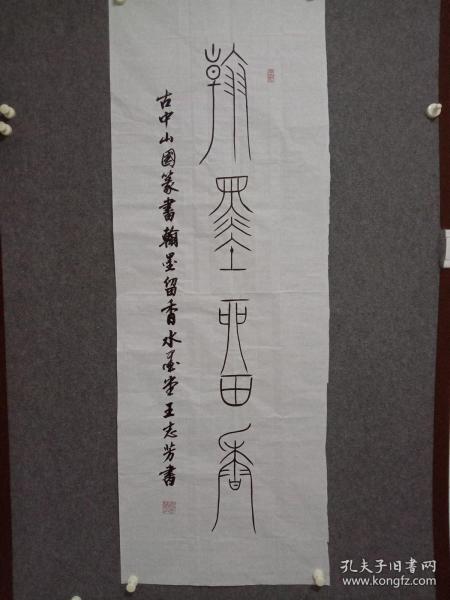 翰墨留香
古中山國篆書翰墨留香水墨堂王志芳書
孔夫子旧书网
www.kongfz.com